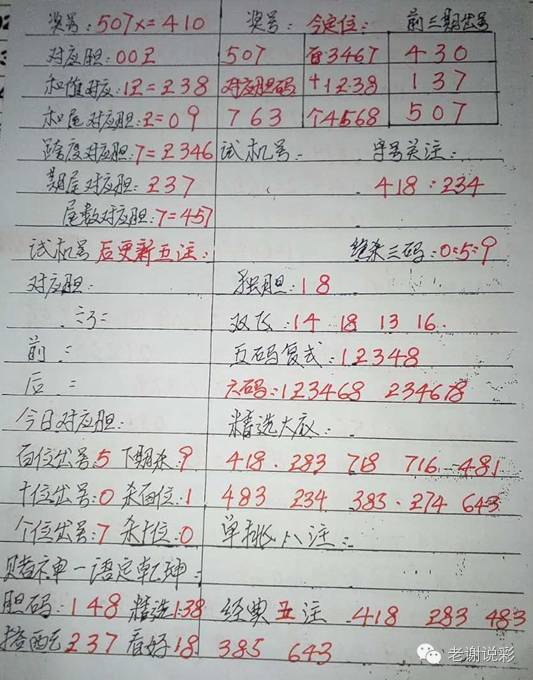 奖号:507x=410 奖号: 今定位: 前三期出号
对应胆:00Z 507 百3467 430
和值对应:12=238 对应胆码 十1238 137
和尾对应胆:2=09 763 个4568 507
跨度对应胆:7=2346 试机号: 字号关注:
期尾对应胆:237 418:234
尾数对应胆:7=457
试机号后更新五注: 绝杀三码:0:5:9
对应胆: 独胆:18
双飞:14 18 13 16.
前:= 五码复式:12348
后:= 六码:123468 234678
今日对应胆: 精选大底:
百位出号:5 下期杀:9 418.283 718 716 481
十位出号:0 杀百位:1 483 234 383.274 643
个位出号:7 杀十位:0 单挑八注:
赌神一语定乾坤:
胆码:148 精选138 经典五注 418 283 483
搭配237 看好18 385 643
老谢说彩